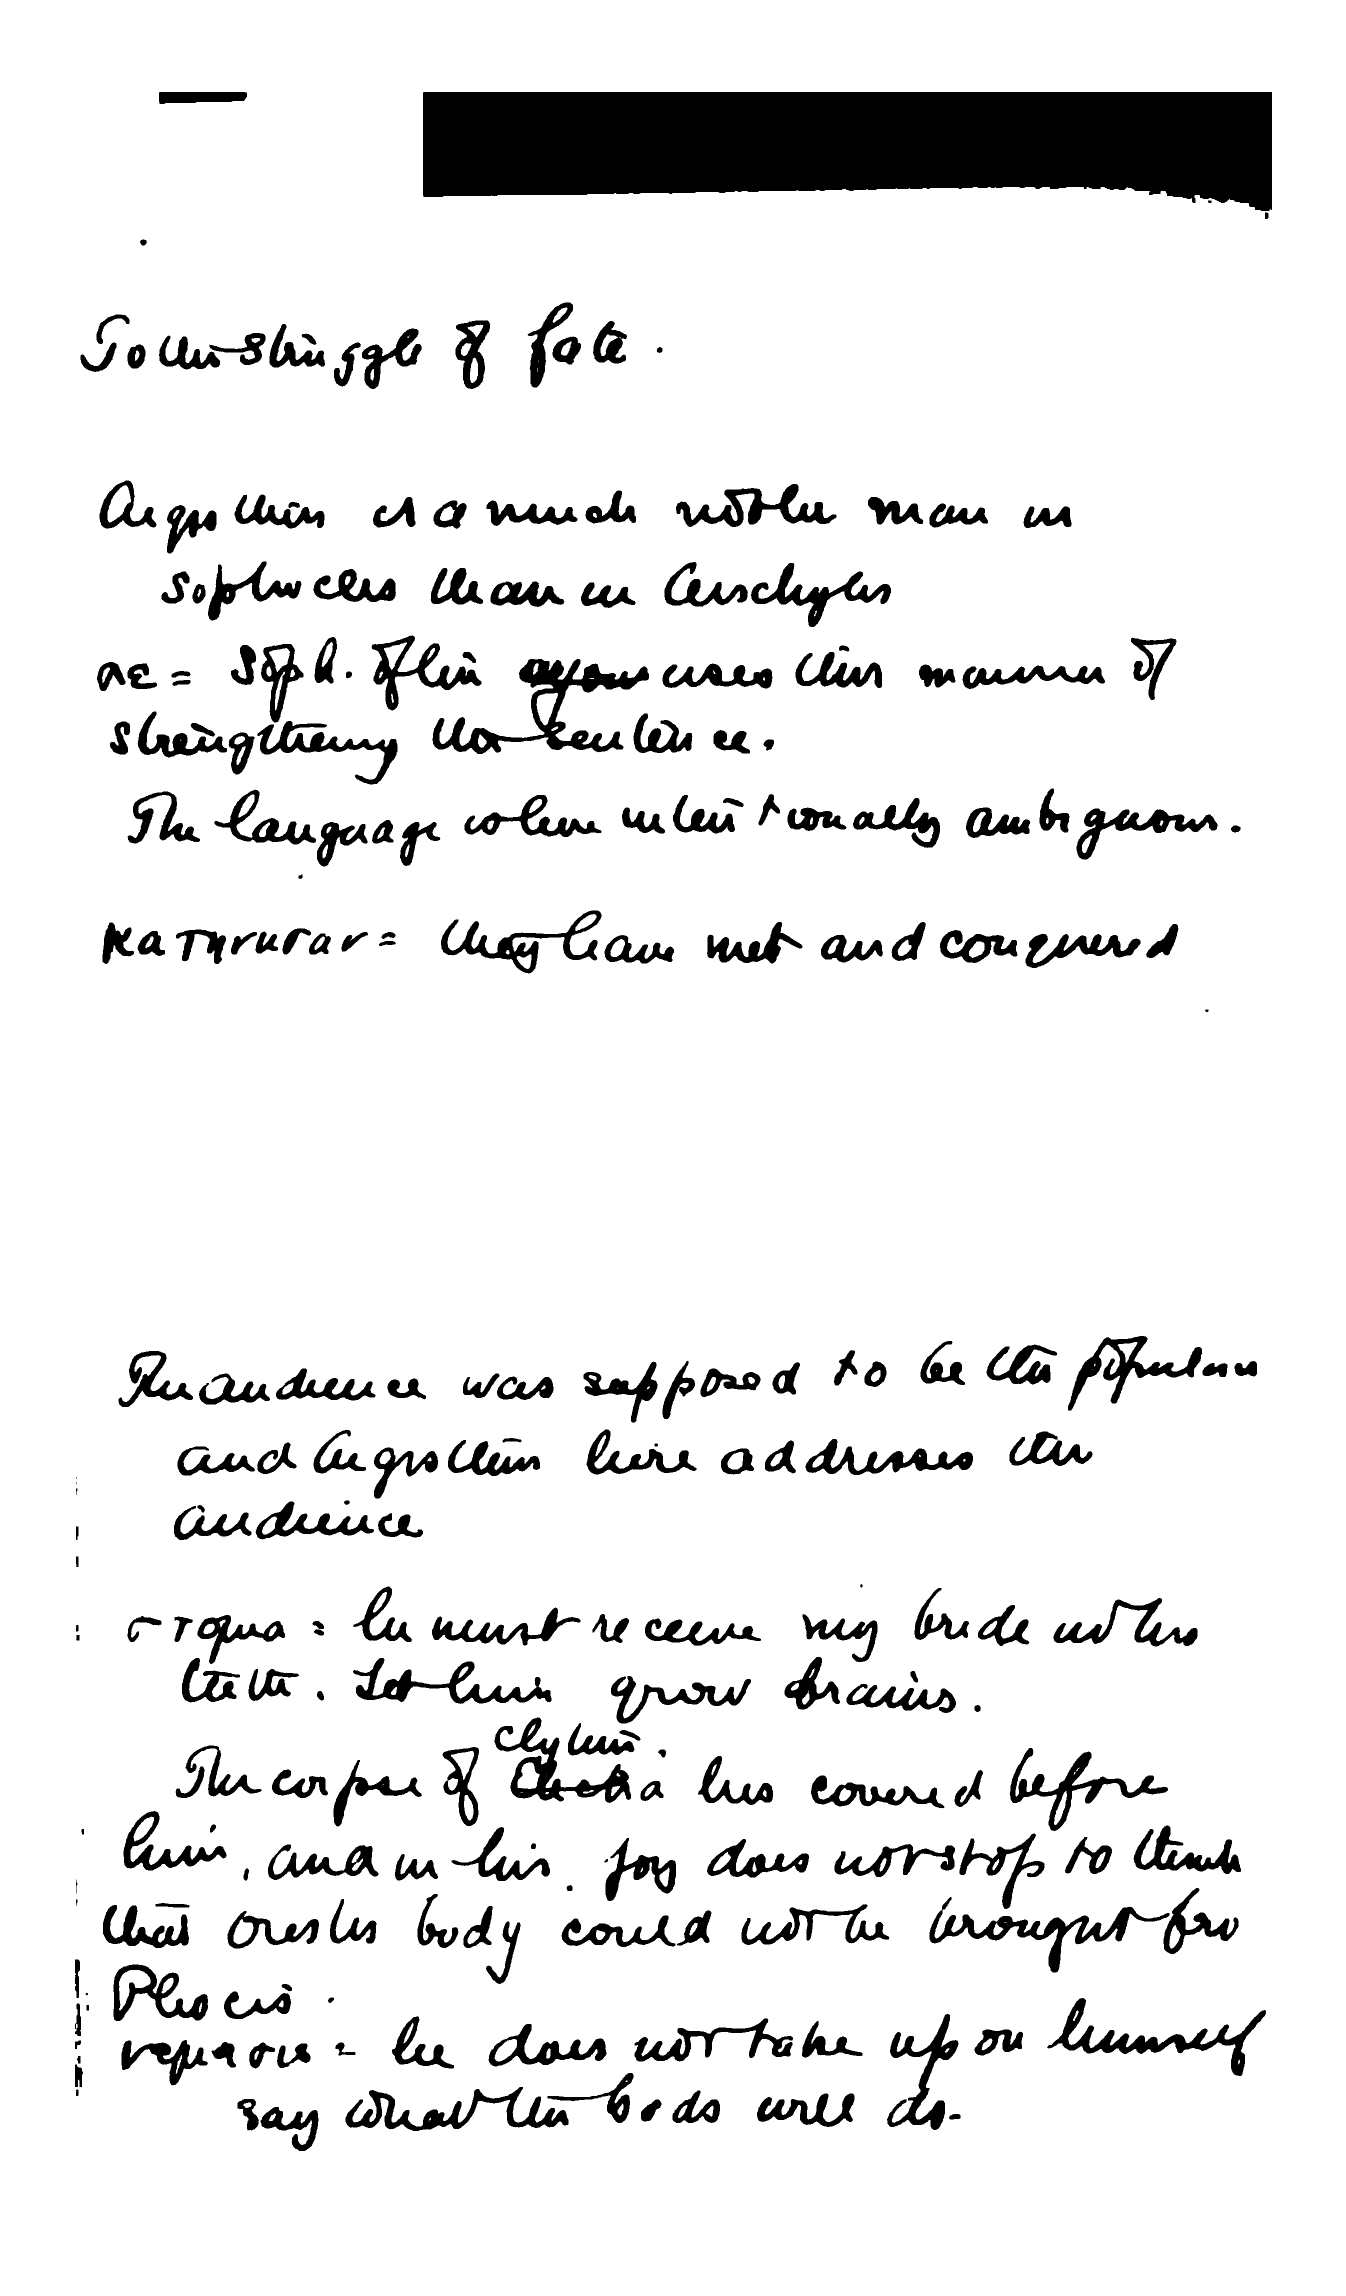 To the struggle of fate.
Aegisthus is a much nobler man in
Sophocles than in Aeschylus
σε = Soph. often uses this manner of
strengthening the sentence.
The language is here intentionally ambiguous.
κατήνυσαν = they have met and conquered
The audience was supposed to be the populace
and Aegisthus here addresses the
audience
στόμια = he must receive my bridle in his
teeth. Let him grow brains.
The corpse of Clytem. lies covered before
him, and in his joy does not stop to think
that Orestes body could not be brought fro
Phocis.
νέμεσις = he does not take upon himself
say what the Gods will do.